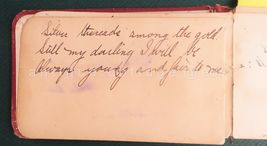 Silver threads among the gold
Still my darling I will be
Always young and fair to me